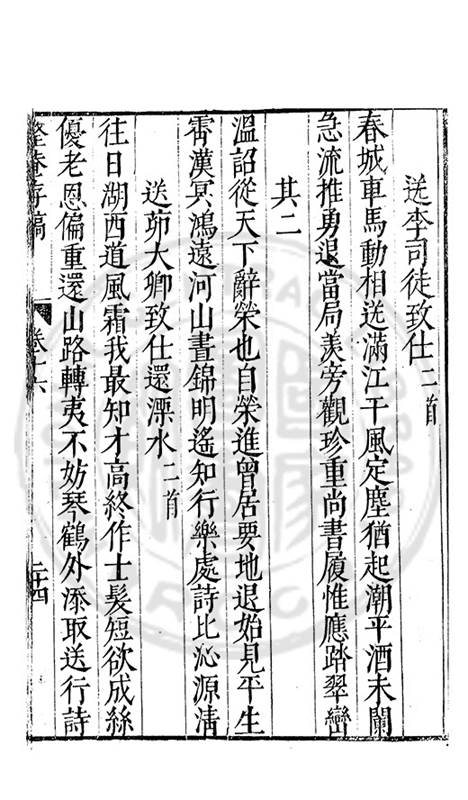 送李司徒致仕二首
春城車馬動相送滿江干風定塵猶起潮平酒未闌
急流推勇退當局羨旁觀珍重尚書履惟應踏翠巒
其二
溫詔從天下辭榮也自榮進曾居要地退始見平生
霄漢冥鴻遠河山晝錦明遙知行樂處詩比沁源清
送茆大卿致仕還溧水二首
往日湖西道風霜我最知才高終作士髮短欲成絲
優老恩偏重還山路轉夷不妨琴鶴外添取送行詩
存稿
卷十六
二十四